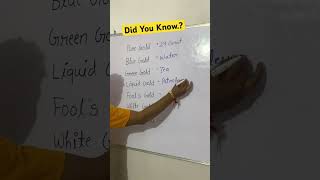 Did You Know.?
Pure Gold - 24 Carat
Blue Gold - Water
Green Gold - Tea
Liquid Gold - Petroleum
Fool's Gold -
White Gold
Blue Gold
Green Gold
Liquid
Fool's
White G